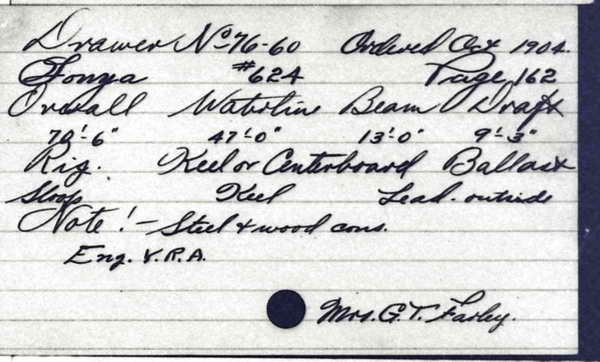 Drawer No 76-60 Ordered Oct 1904
Sonya #624 Page 162
Overall Waterline Beam Draft
70'-6" 47'-0" 13'-0" 9'-3"
Rig. Keel or Centerboard Ballast
Sloop Keel Lead. outside
Note! - Steel & wood cons.
Eng. Y.R.A.
Mrs. G.T. Farley.